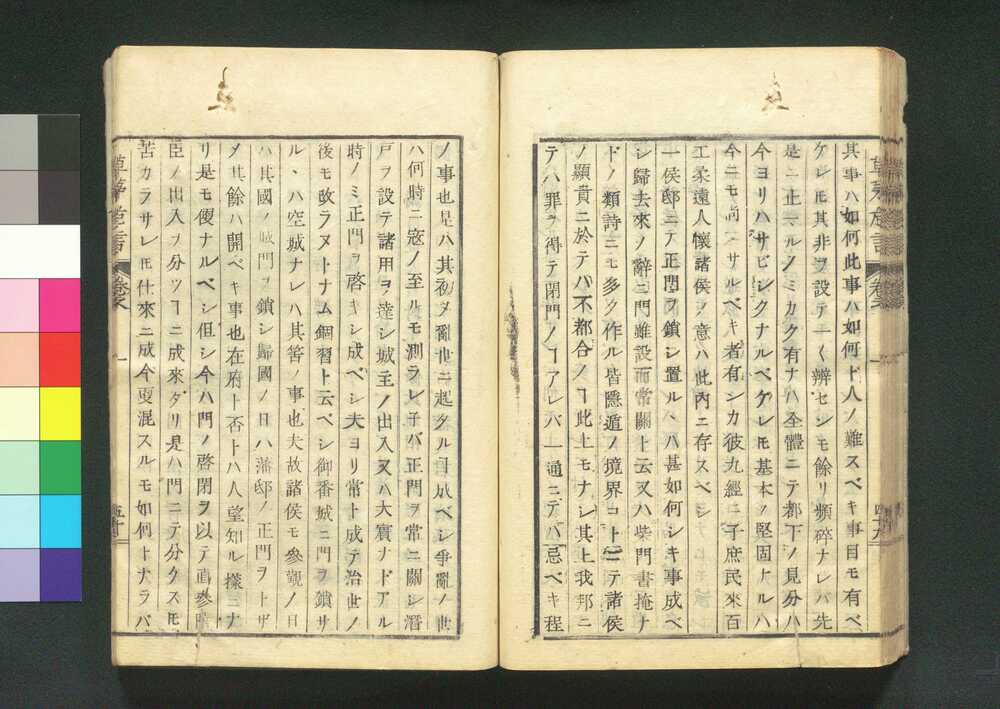 其事ハ如何此事ハ如何ト人ノ難スベキ事目モ有ベ
ケレモ其非ヲ設テ一〱辨センモ餘リ頻碎ナレバ先
是ニ止マルノミカク有ナハ全體ニテ都下ノ見分ハ
今ヨリハサビシクナルベケレモ基本ノ堅固ナルハ
今ニモ尚ヘサルベキ者有ンカ彼九經ニ子庶民來百
工柔遠人懷諸侯ノ意ハ此内ニ存スベシ
一侯邸ニテ正門ヲ鎖シ置ルヽハ甚如何シキ事成ベ
シ歸去來ノ辭ニ門雖設而常關ト云又ハ柴門書掩ナ
ドノ類詩ニモ多ク作ル皆隱遁ノ境界コトニテ諸侯
ノ顯貴ニ於テハ不都合ノヿ此上モナシ其上我邦ニ
テハ罪ヲ得テ閉門ノヿアレバ一通ニテバ忌ベキ程
ノ事也是ハ其初メ亂世ニ起タル事成ベシ爭亂ノ世
ハ何時ニ寇ノ至ルモ測ラレ子バ正門ヲ常ニ關シ潛
戸ヲ設テ諸用ヲ達シ城主ノ出入又ハ大賓ナドアル
時ノミ正門ヲ啓キシ成ベシ夫ヨリ常ト成テ治世ノ
後モ改ラヌトナム錮習ト云ベシ御番城ニ門ヲ鎖サ
ルヽハ空城ナレハ其筈ノ事也夫故諸侯モ參覲ノ日
ハ其國ノ城門ヲ鎖シ歸國ノ日ハ藩邸ノ正門ヲトザ
メ其餘ハ開ベキ事也在府ト否トハ人望知ル様ニナ
リ是モ便ナルベシ但シ今ハ門ノ啓閉ヲ以テ直參陪
臣ノ出入ヲ分ツヿニ成來タリ是ハ門ニテ分タスモ
苦カラサレモ仕來ニ成今更混スルモ如何トナラバ